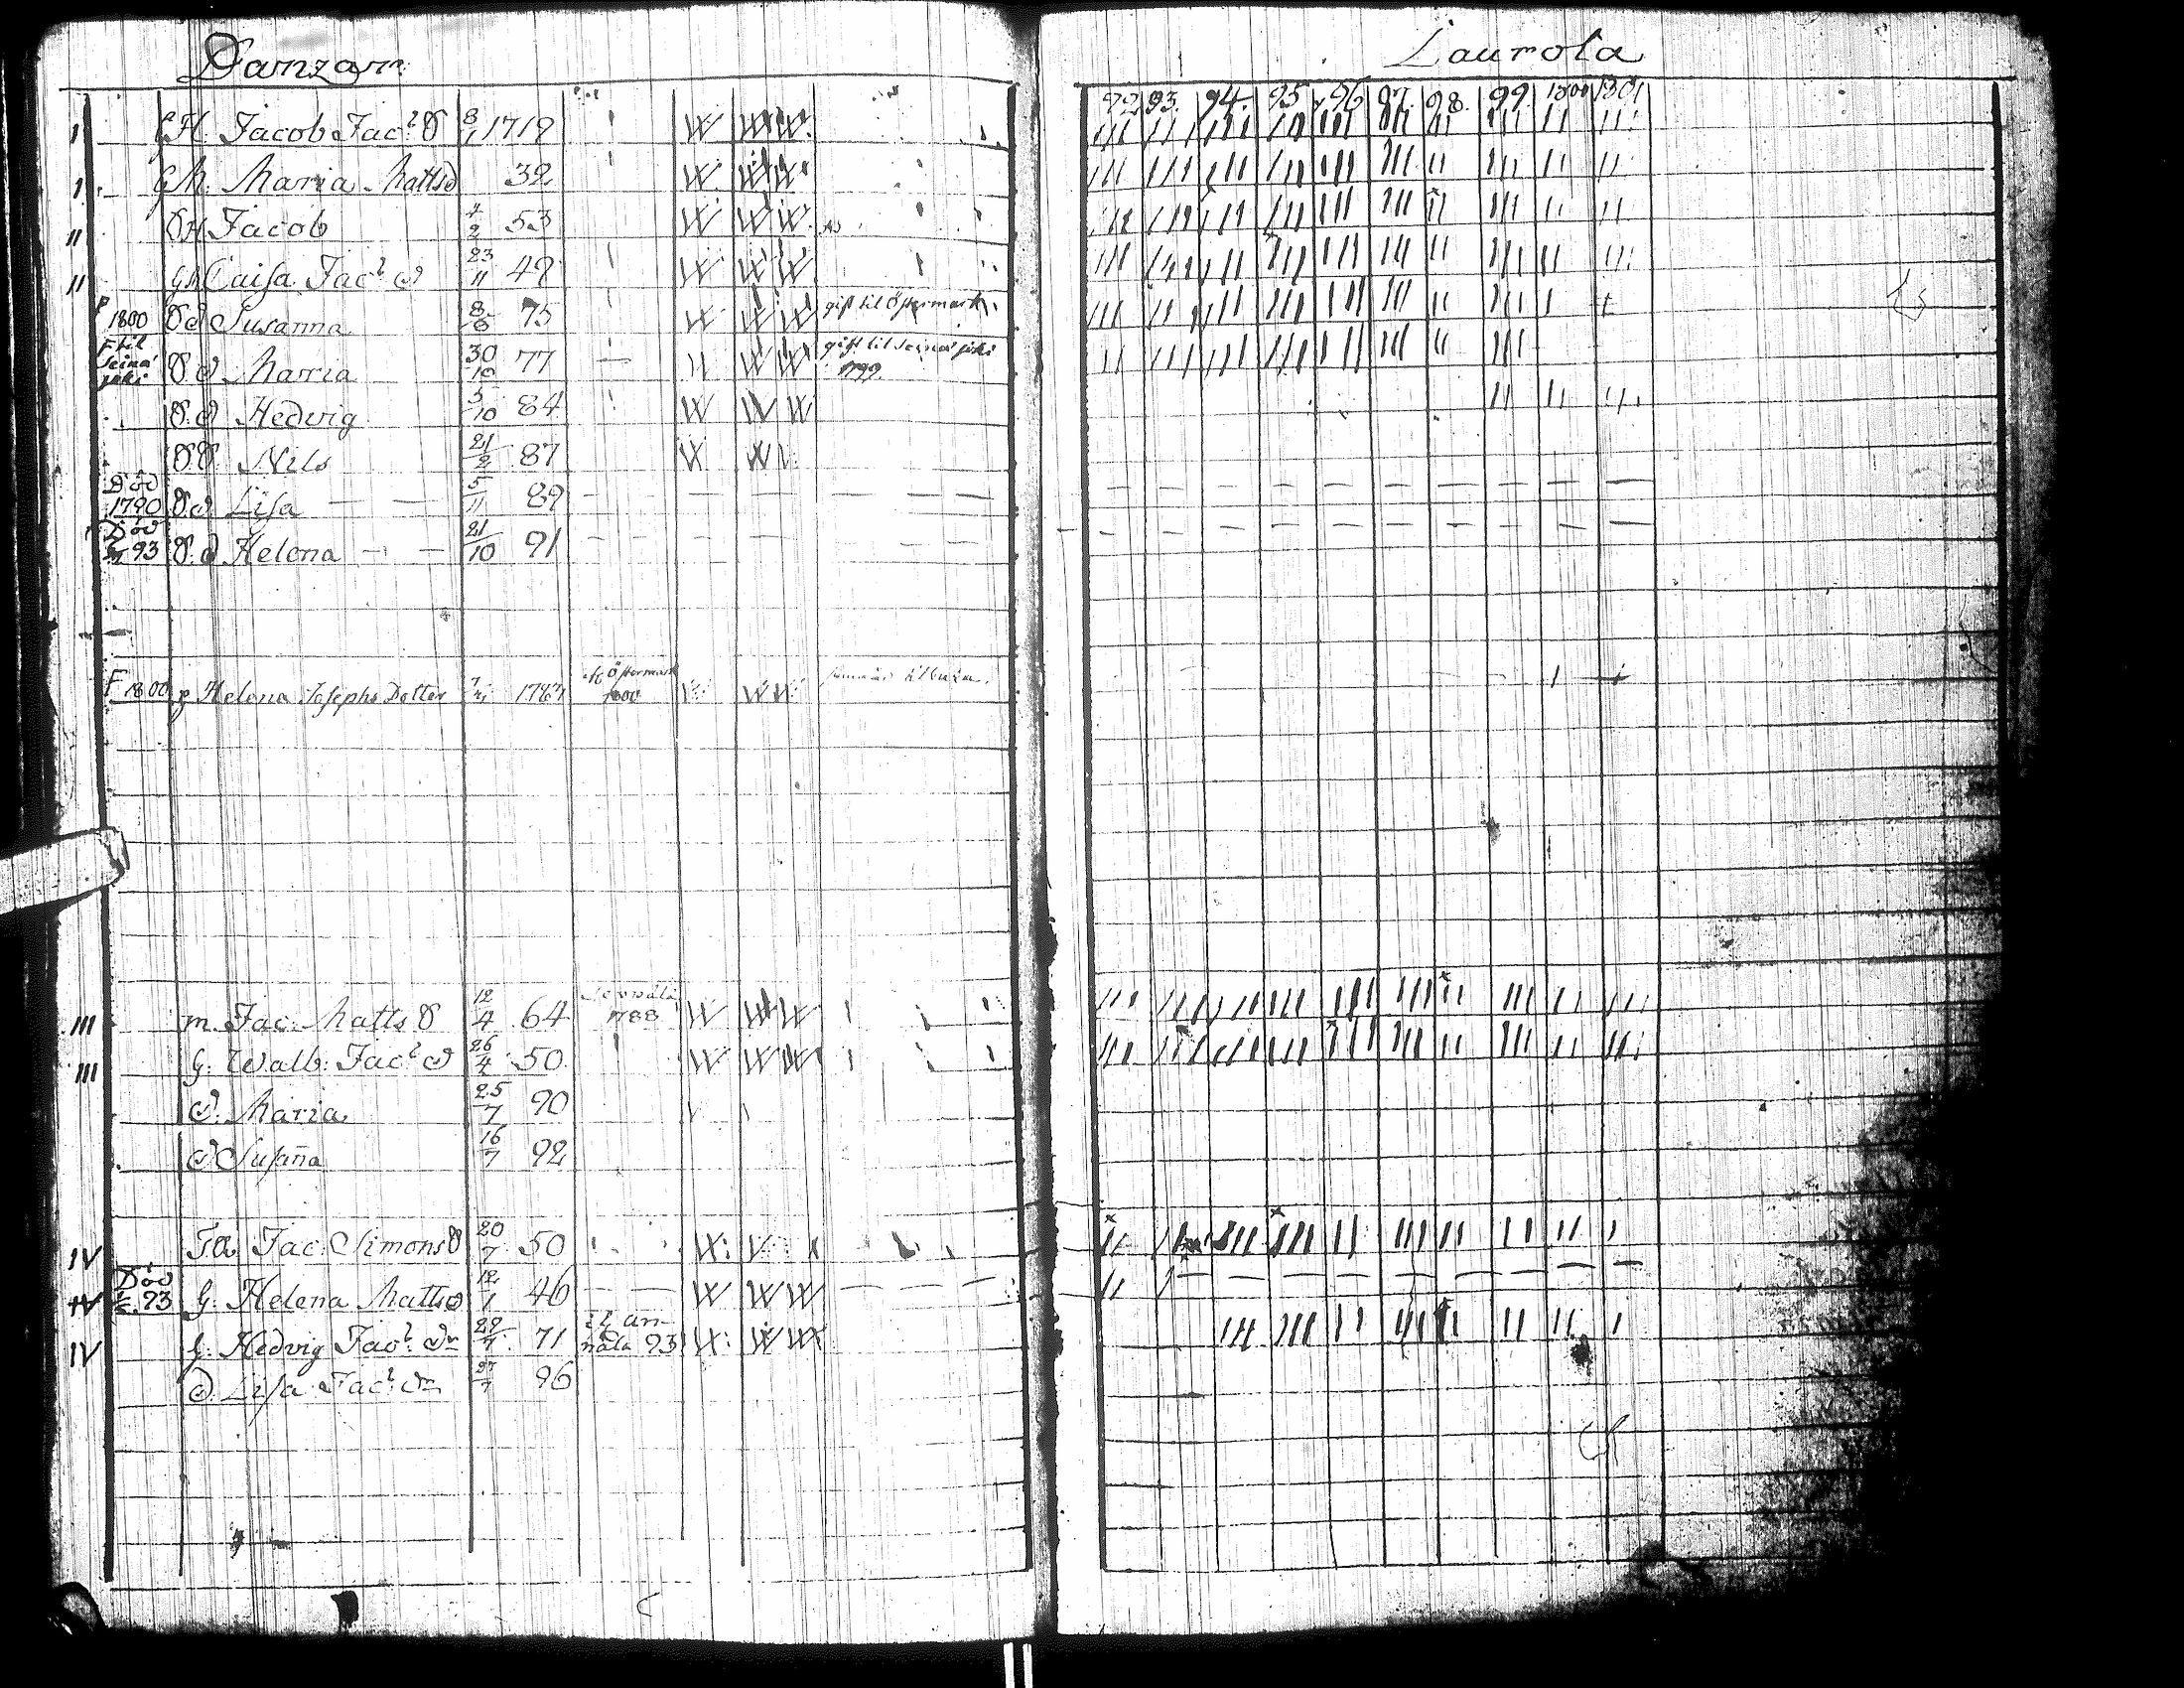 Danzarn
Laurola
92 93. 94. 95 96 97. 98. 99. 1800 1801
I GH. Jacob Jac:s S 8/1 1719
I GM. Maria Mattsd 32
II SH Jacob 4/2 53
II GM Caisa Jac:s d 23/11 49
F 1800 S d Susanna 8/6 75 gift til Östermark
F til Seinä joki S. d Maria 30/10 77 gift til Seinäjoki 1799.
S. d Hedvig 5/10 84
S S Nils 21/2 87
Död 1790 S. d Lisa 5/11 89
Död 93 S. d Helena 21/10 91
F 1800 p Helena Josephs Dotter 1767 Östermark 1800
III m. Jac: Matts S 12/4 64 1788
III G: Walb: Jac:s d 26/4 50.
d. Maria 25/7 90
d Susana 16/7 92
IV Jac: Simons S 20/7 50
IV Död 93 G: Helena Matts d 12/1 46
IV G: Hedvig Jac:s dr 29/7. 71 il an nala 93
d. Lisa Jac:s dr 27/7 96